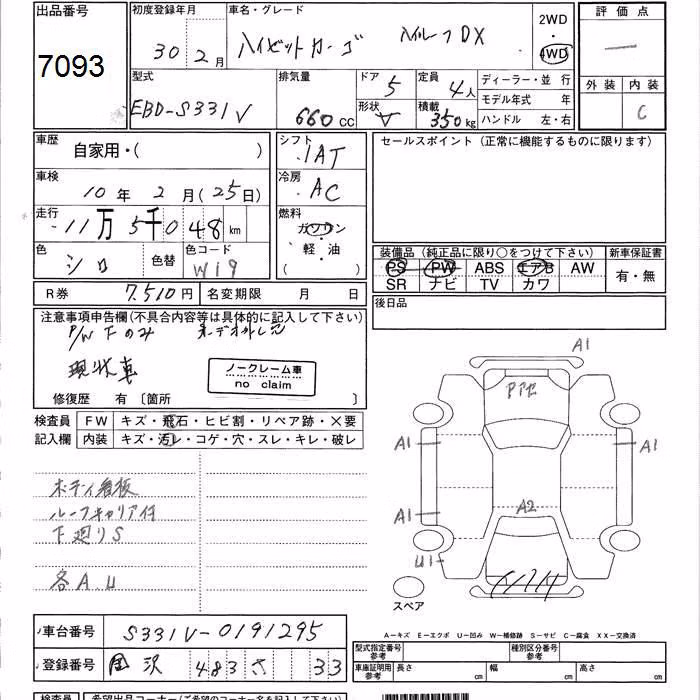 出品番号
7093
初度登録年月
30年 2月
車名・グレード
ハイゼットカーゴ ハイルーフDX
2WD
4WD
評価点
外装 内装
C
型式
EBD-S331V
排気量
660 CC
ドア 5
形状 V
定員 4人
積載 350kg
ディーラー・並行
モデル年式 年
ハンドル 左・右
車歴
自家用・( )
シフト
IAT
セールスポイント (正常に機能するものに限ります)
車検
10年 2月(25日)
冷房
AC
走行
11万5千048km
燃料
ガソリン
軽・油
( )
色
シロ
色替
色コード
W19
装備品 (純正品に限り○をつけて下さい)
PS PW ABS エアB AW
SR ナビ TV カワ
新車保証書
有・無
R券 7,510円 名変期限 月 日
後日品
注意事項申告欄(不具合内容等は具体的に記入して下さい)
P/W下のみ オーデオ外し
現状車
ノークレーム車
no claim
修復歴 有 〔箇所 〕
検査員
記入欄
FW キズ・飛石・ヒビ割・リペア跡・×要
内装 キズ・汚レ・コゲ・穴・スレ・キレ・破レ
ボディ看板
ルーフキャリア付
下廻りS
各A.U
A1
A1
A1
A1
A2
U1
スペア
A-キズ E-エクボ U-凹み W-補修跡 S-サビ C-腐食 XX-交換済
車台番号 S331V-0191295
登録番号 483 33
型式指定番号
参考
種別区分番号
参考
車庫証明用
参考
長さ 幅 高さ
検査員 希望出品コーナー(ご希望のコーナー名を記入して下さい)